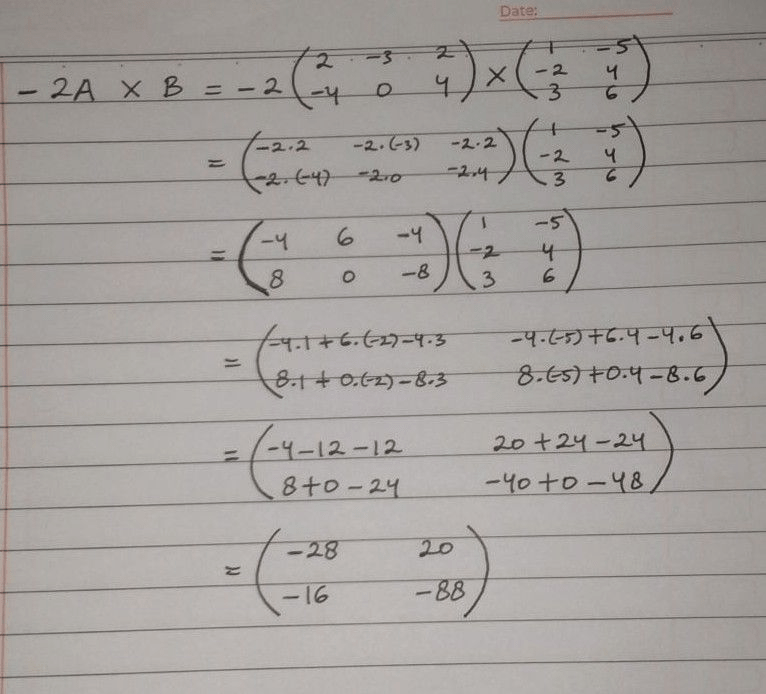 Date:
-2A × B = -2 (2 -3 2; -4 0 4) × (1 -5; -2 4; 3 6)
= (-2.2 -2.(-3) -2.2; -2.(-4) -2.0 -2.4) (1 -5; -2 4; 3 6)
= (-4 6 -4; 8 0 -8) (1 -5; -2 4; 3 6)
= (-4.1+6.(-2)-4.3 -4.(-5)+6.4-4.6; 8.1+0.(-2)-8.3 8.(-5)+0.4-8.6)
= (-4-12-12 20+24-24; 8+0-24 -40+0-48)
= (-28 20; -16 -88)